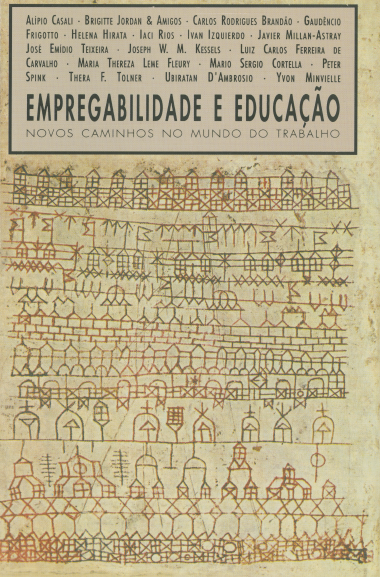 Alípio Casali · Brigitte Jordan & Amigos · Carlos Rodrigues Brandão · Gaudêncio
Frigotto · Helena Hirata · Iaci Rios · Ivan Izquierdo · Javier Millan-Astray
José Emídio Teixeira · Joseph W. M. Kessels · Luiz Carlos Ferreira de
Carvalho · Maria Thereza Leme Fleury · Mario Sergio Cortella · Peter
Spink · Thera F. Tolner · Ubiratan D'Ambrosio · Yvon Minvielle
EMPREGABILIDADE E EDUCAÇÃO
NOVOS CAMINHOS NO MUNDO DO TRABALHO